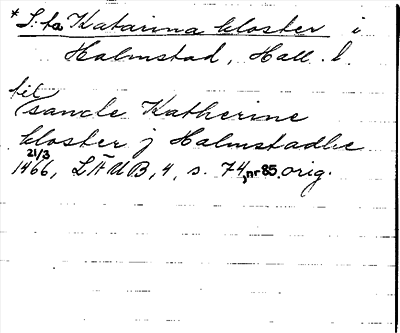 * S:ta Katarina kloster i
Halmstad, Hall. l.
til
sancte Katherine
kloster j Halmstadhe
21/3
1466, LÄUB, 4, s. 74, nr 85. orig.